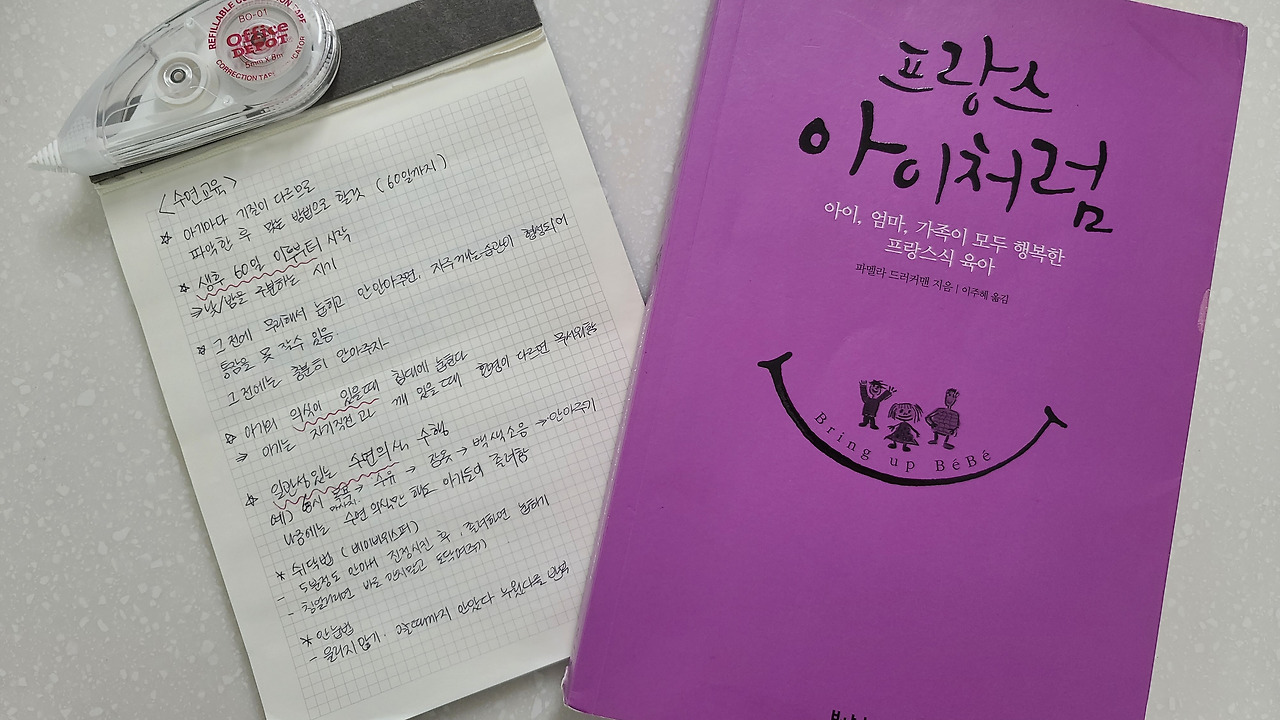 REFILLABLE CORRECTION TAPE
BO-01
Office
DEPOT
5mm x 8m
CORRECTION TAPE
<수면교육>
☆ 아기마다 기질이 다르므로
파악한 후 맞는 방법으로 할것 (60일까지)
☆ 생후 60일 이후부터 시작
⇒ 낮/밤을 구분하는 시기
☆ 그 전에 무리해서 눕히고 안 안아주면, 자주 깨는 습관이 형성되어
통잠을 못 잘수 있음.
그 전에는 충분히 안아주자
☆ 아기의 의식이 있을때 침대에 눕힌다
⇒ 아기는 자기직전과 깨 있을때 환경이 다르면 무서워함
☆ 일관성있는 수면의식 수행
예) 6시 목욕 마사지 → 수유 → 잠옷 → 백색소음 → 안아주기
나중에는 수면 의식만 해도 아기들이 졸려함
* 쉬닥법 (베이비위스퍼)
- 5분정도 안아서 진정시킨 후, 졸려하면 눕히기
- 칭얼거리면 바로 안지말고 도닥여주기
* 안눕법
- 울리지 않기. 잘때까지 안았다 눕혔다를 반복
프랑스
아이처럼
아이, 엄마, 가족이 모두 행복한
프랑스식 육아
파멜라 드러커맨 지음 | 이주혜 옮김
Bring up BéBé